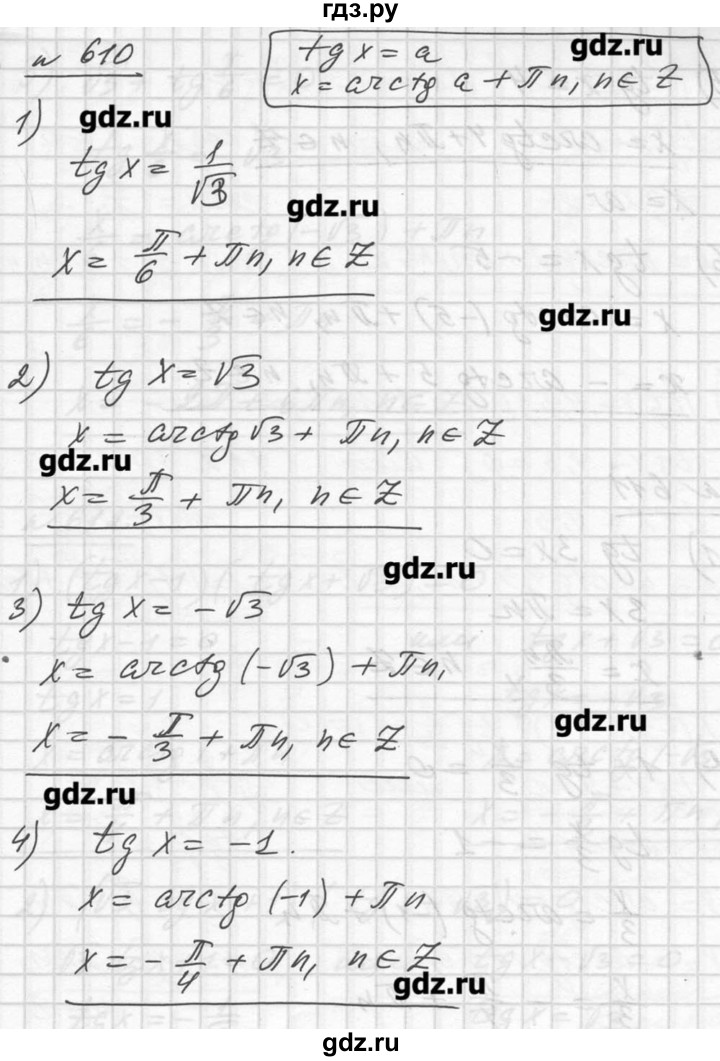 гдз.ру
№ 610
tg x = a
x = arctg a + πn, n ∈ Z
gdz.ru
1)
gdz.ru
tg x = 1/√3
gdz.ru
x = π/6 + πn, n ∈ Z
gdz.ru
2) tg x = √3
x = arctg √3 + πn, n ∈ Z
gdz.ru
x = π/3 + πn, n ∈ Z
gdz.ru
3) tg x = -√3
x = arctg (-√3) + πn,
x = - π/3 + πn, n ∈ Z
gdz.ru
gdz.ru
4) tg x = -1.
x = arctg (-1) + πn
x = - π/4 + πn, n ∈ Z
gdz.ru
гдз.ру